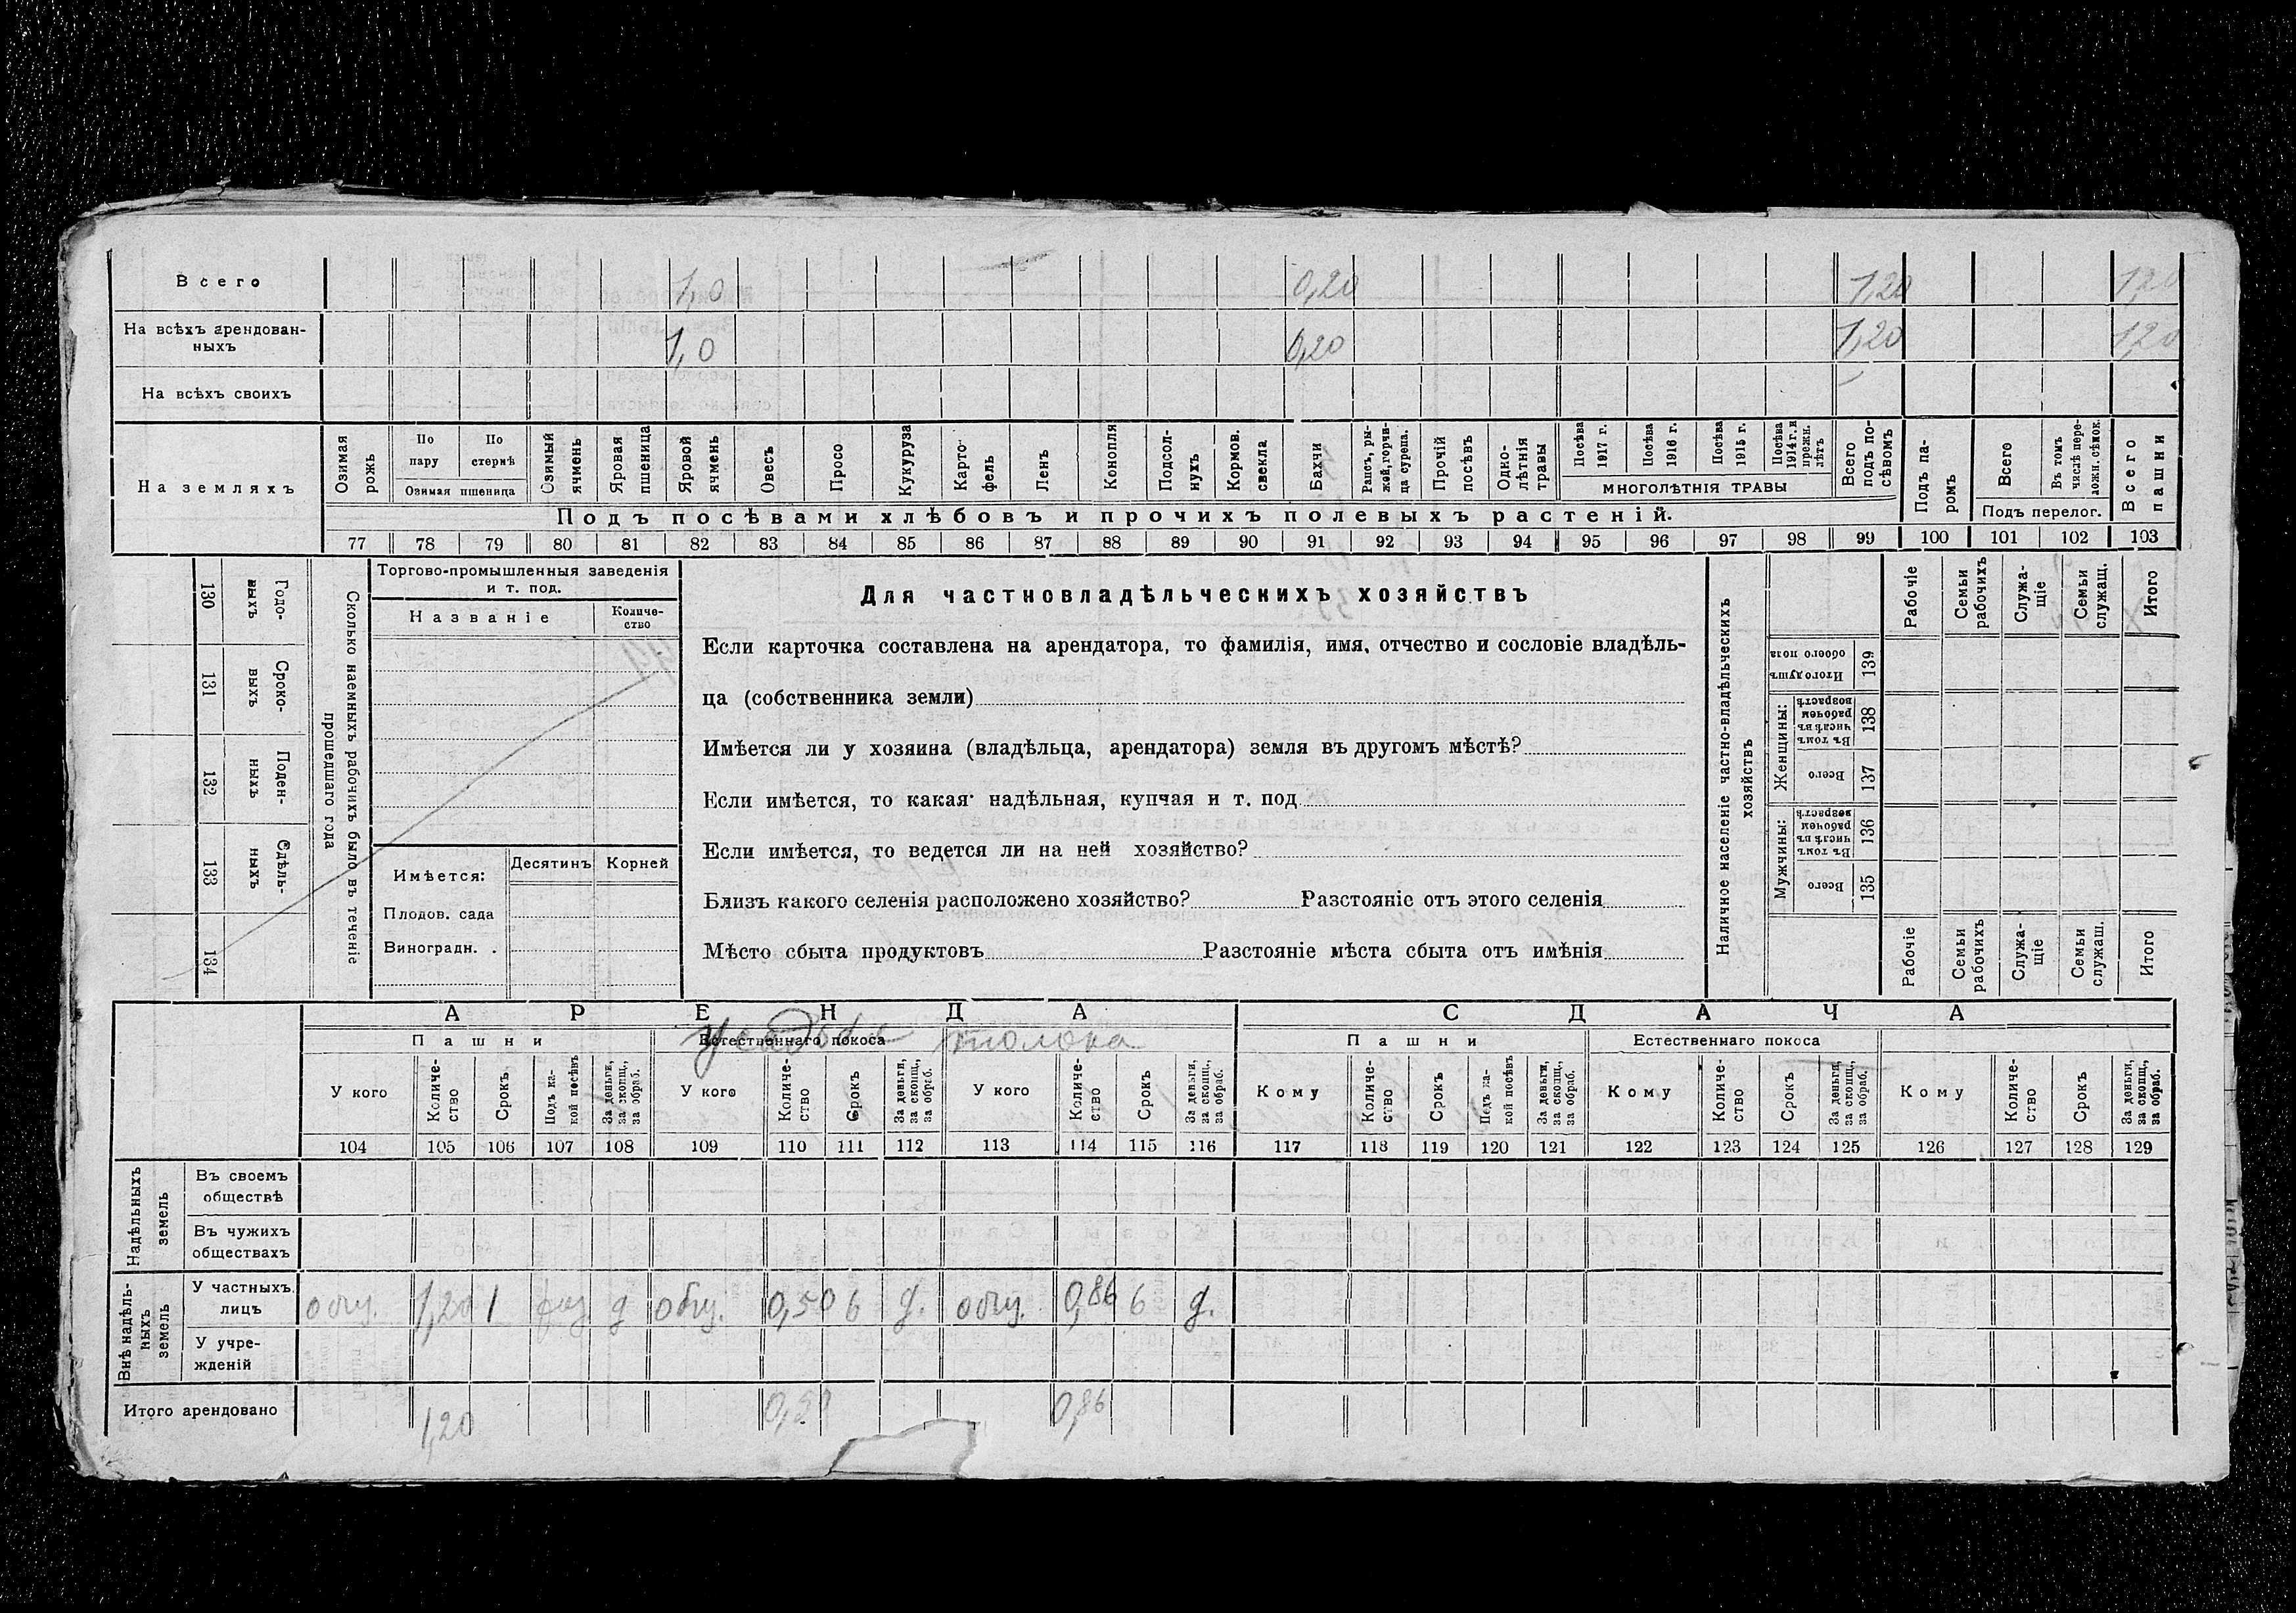 Всего 1,0 0,20 1,20 1,20
На всѣхъ арендован-
ныхъ 1,0 0,20 1,20 1,20
На всѣхъ своихъ —
На земляхъ
Озимая рожь
По пару
По стернѣ
Озимая пшеница
Озимый ячмень
Яровая пшеница
Яровой ячмень
Овесъ
Просо
Кукуруза
Картофель
Ленъ
Конопля
Подсол-
нухъ
Кормов.
свекла
Бахчи
Рапсъ, ры-
жей, горчи-
ца сурепа.
Прочій
посѣвъ
Одно-
лѣтнія
травы
Посѣва
1917 г.
Посѣва
1916 г.
Посѣва
1915 г.
Посѣва
1914 г. и
прежн.
лѣтъ
МНОГОЛѢТНІЯ ТРАВЫ
Всего
подъ по-
сѣвомъ
Подъ па-
ромъ
Всего
Въ томъ
числѣ пере-
ложн. сѣнок.
Подъ перелог.
Всего
пашни
Подъ посѣвами хлѣбовъ и прочихъ полевыхъ растеній.
77 78 79 80 81 82 83 84 85 86 87 88 89 90 91 92 93 94 95 96 97 98 99 100 101 102 103
130 Годо-
выхъ
131 Сроко-
выхъ
132 Поден-
ныхъ
133 Сдѣль-
ныхъ
134
Сколько наемныхъ рабочихъ было въ теченіе
прошедшаго года
Торгово-промышленныя заведенія
и т. под.
Названіе
Количе-
ство
Имѣется:
Десятинъ Корней
Плодов. сада
Виноградн. .
Для частновладѣльческихъ хозяйствъ
Если карточка составлена на арендатора, то фамилія, имя, отчество и сословіе владѣль-
ца (собственника земли)
Имѣется ли у хозяина (владѣльца, арендатора) земля въ другомъ мѣстѣ?
Если имѣется, то какая· надѣльная, купчая и т. под
Если имѣется, то ведется ли на ней хозяйство?
Близъ какого селенія расположено хозяйство? Разстояніе отъ этого селенія
Мѣсто сбыта продуктовъ Разстояніе мѣста сбыта отъ имѣнія
Наличное населеніе частно-владѣльческихъ
хозяйствъ
Рабочіе
Семьи
рабочихъ
Служа-
щіе
Семьи
служащ.
Итого
Итого душъ
обоего пола
139
Женщины:
Въ томъ
числѣ въ
рабочем
возрастѣ
138
Всего
137
Мужчины:
Въ томъ
числѣ въ
рабочем
возрастѣ
136
Всего
135
Рабочіе
Семьи
рабочихъ
Служа-
щіе
Семьи
служащ.
Итого
АРЕНДА СДАЧА
Пашни Естественнаго покоса усадьба толока Пашни Естественнаго покоса
У кого
Количе-
ство
Срокъ
Подъ ка-
кой посѣвъ
За деньги,
за скопщ.,
за обраб.
У кого
Количе-
ство
Срокъ
За деньги,
за скопщ.,
за обраб.
У кого
Количе-
ство
Срокъ
За деньги,
за скопщ.,
за обраб.
Кому
Количе-
ство
Срокъ
Подъ ка-
кой посѣвъ
За деньги,
за скопщ.,
за обраб.
Кому
Количе-
ство
Срокъ
За деньги,
за скопщ.,
за обраб.
Кому
Количе-
ство
Срокъ
За деньги,
за скопщ.,
за обраб.
104 105 106 107 108 109 110 111 112 113 114 115 116 117 118 119 120 121 122 123 124 125 126 127 128 129
Надѣльныхъ
земель
Въ своемъ
обществѣ
Въ чужихъ
обществахъ
Внѣ надѣль-
ныхъ
земель
У частныхъ
лицъ
общ. 1,20 1 д общ. 0,50 6 д. общ. 0,86 6 д.
У учре-
жденій
Итого арендовано 1,20 0,50 0,86